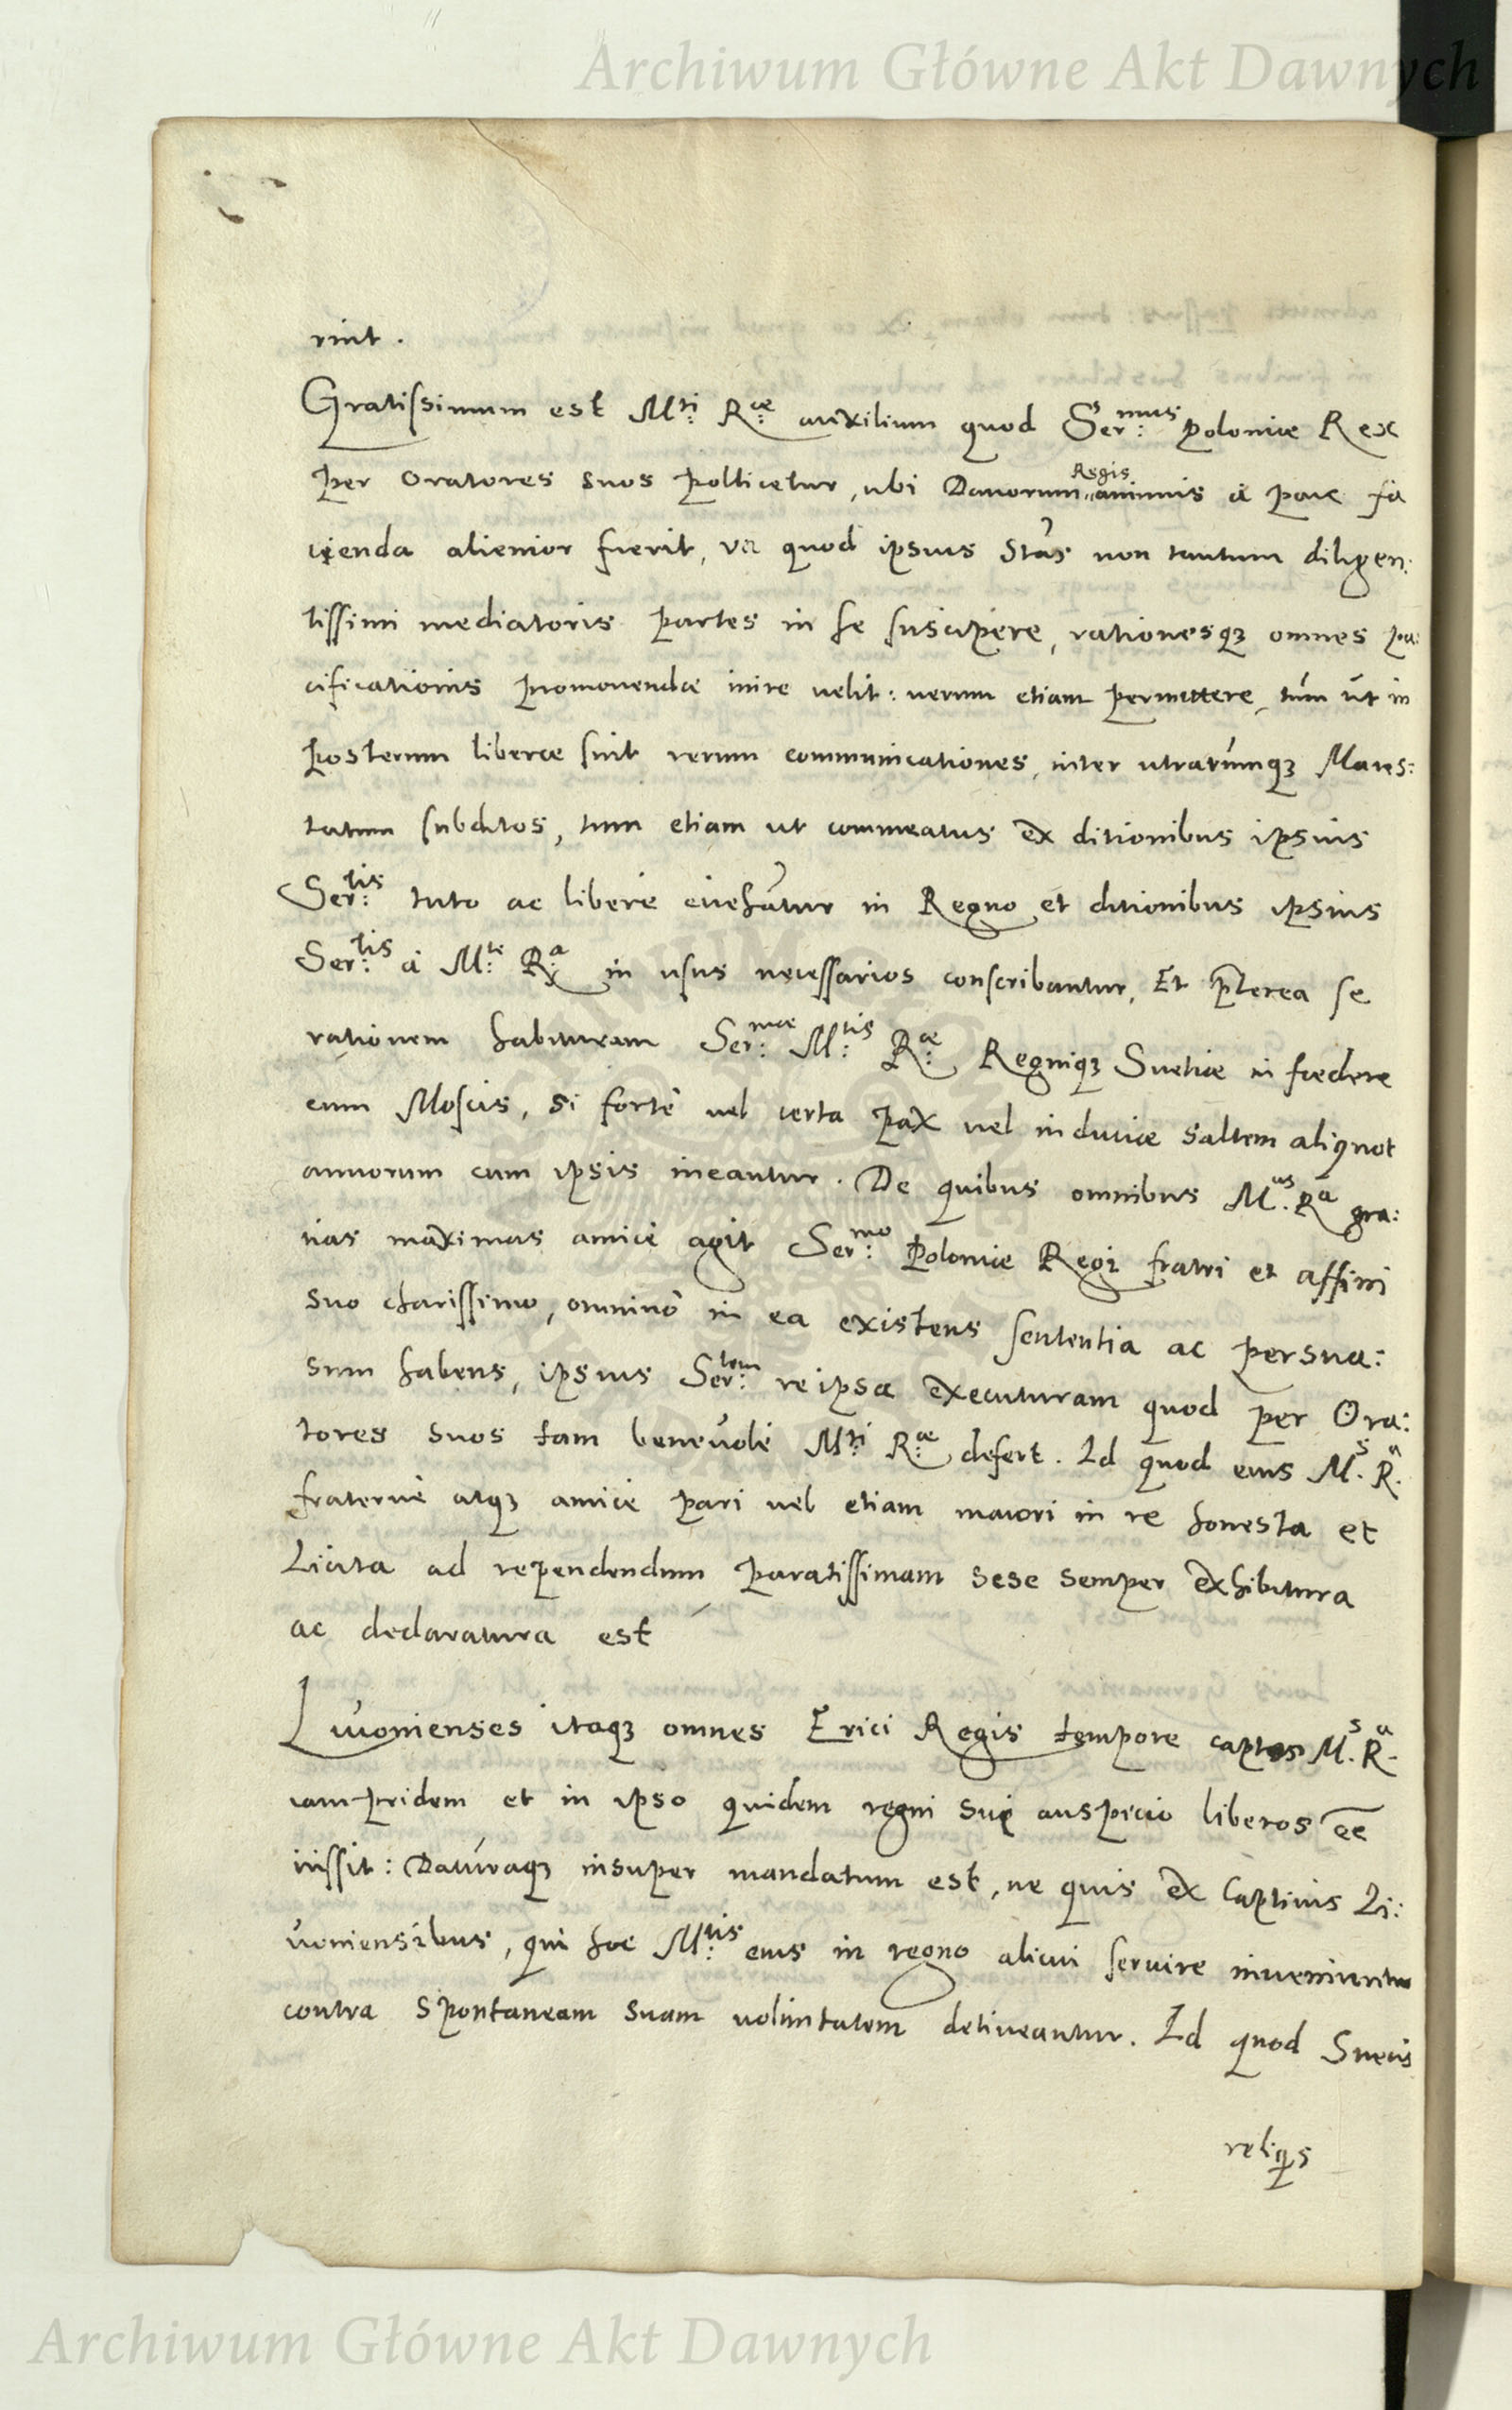 Archiwum Główne Akt Dawnych
rint.
Gratissimum est M:ti R:æ auxilium quod Ser:mus Poloniæ Rex
per Oratores suos pollicetur, ubi Danorum Regis animus à pace fa
cienda alienior fuerit, vel quod ipsius Stas non tantum diligen:
tissimi mediatoris partes in se suscipere, rationesq3 omnes pa:
cificationis promovendæ inire velit: verum etiam permittere, tùm ùt in
posterum liberæ sint rerum communicationes, inter utrarúmq3 Maies:
tatum subditos, tum etiam ut commeatus ex ditionibus ipsius
Ser:tis tuto ac liberè evehãtur in Regno et ditionibus ipsius
Ser:tis à M:te R:a in usus necessarios conscribantur, Et p̃terea se
rationem habituram Ser:mæ M:tis R:æ Regniq3 Suetiæ in fœdere
cum Moscis, si fortè vel certa pax vel induciæ saltem aliquot
annorum cum ipsis ineantur. De quibus omnibus M.as R.a gra:
tias maximas amicè agit Ser:mo Poloniæ Regi fratri et affini
suo charissimo, omninò in ea existens sententia ac persua:
sum habens, ipsius Ser:tem reipsa executuram quod per Ora:
tores suos tam benevolè M:ti R:æ defert. Id quod eius M.s R.a
fraternè atq3 amicè pari vel etiam maiori in re honesta et
Licita ad rependendum paratissimam sese semper exhibitura
ac declaratura est
Livonienses itaq3 omnes Erici Regis tempore captos M.s R.a
iampridem et in ipso quidem regni sui auspicio liberos ee̅
iussit: Datúraq3 insuper mandatum est, ne quis ex Captivis Li:
voniensibus, qui hoc M:tis eius in regno alicui servire inveniuntur
contra spontaneam suam voluntatem detineantur. Id quod Suecis
reliq̃s
Archiwum Główne Akt Dawnych